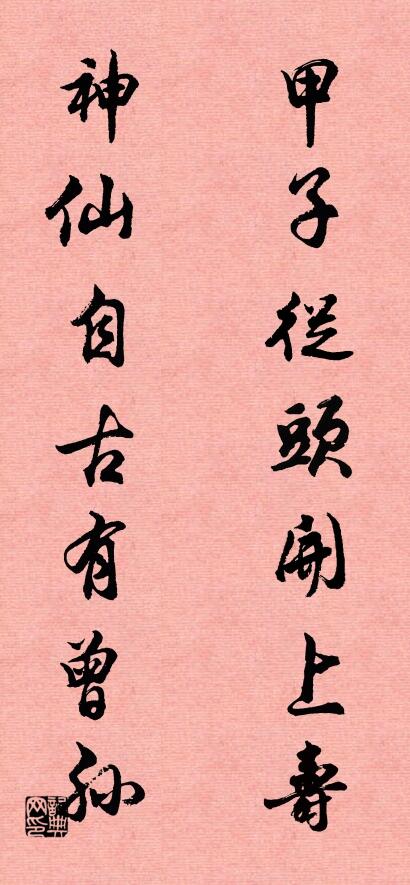 甲子從頭開上壽
神仙自古有曾孫